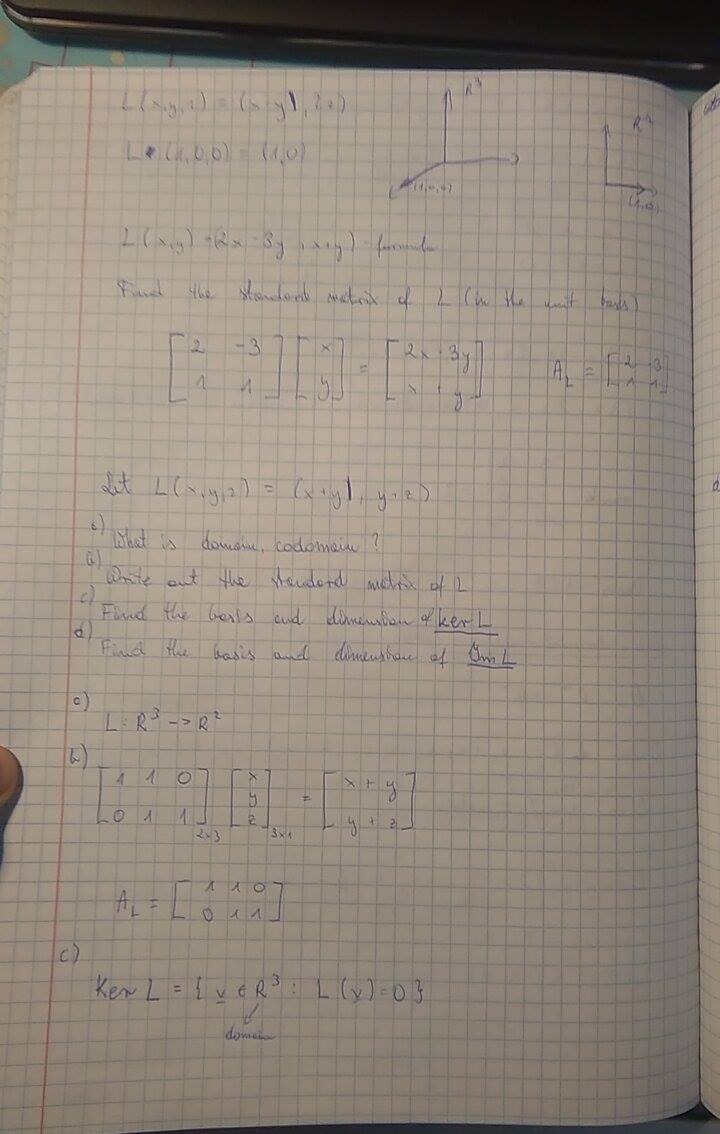 L(x,y,z) = (x+y, 2z)
R³
R²
L(1,0,0) = (1,0)
(1,0,0)
(1,0)
L(x,y) = (2x-3y, x+y) formula
Find the standard matrix of L (in the unit basis)
[2 -3; 1 1] [x; y] = [2x-3y; x+y] A_L = [2 -3; 1 1]
Let L(x,y,z) = (x+y, y+z)
a) What is domain, codomain?
b) Write out the standard matrix of L
c) Find the basis and dimension of ker L
d) Find the basis and dimension of Im L
a)
L: R³ -> R²
b)
[1 1 0; 0 1 1]2x3 [x; y; z]3x1 = [x+y; y+z]
A_L = [1 1 0; 0 1 1]
c)
Ker L = {v ∈ R³ : L(v)=0}
domain